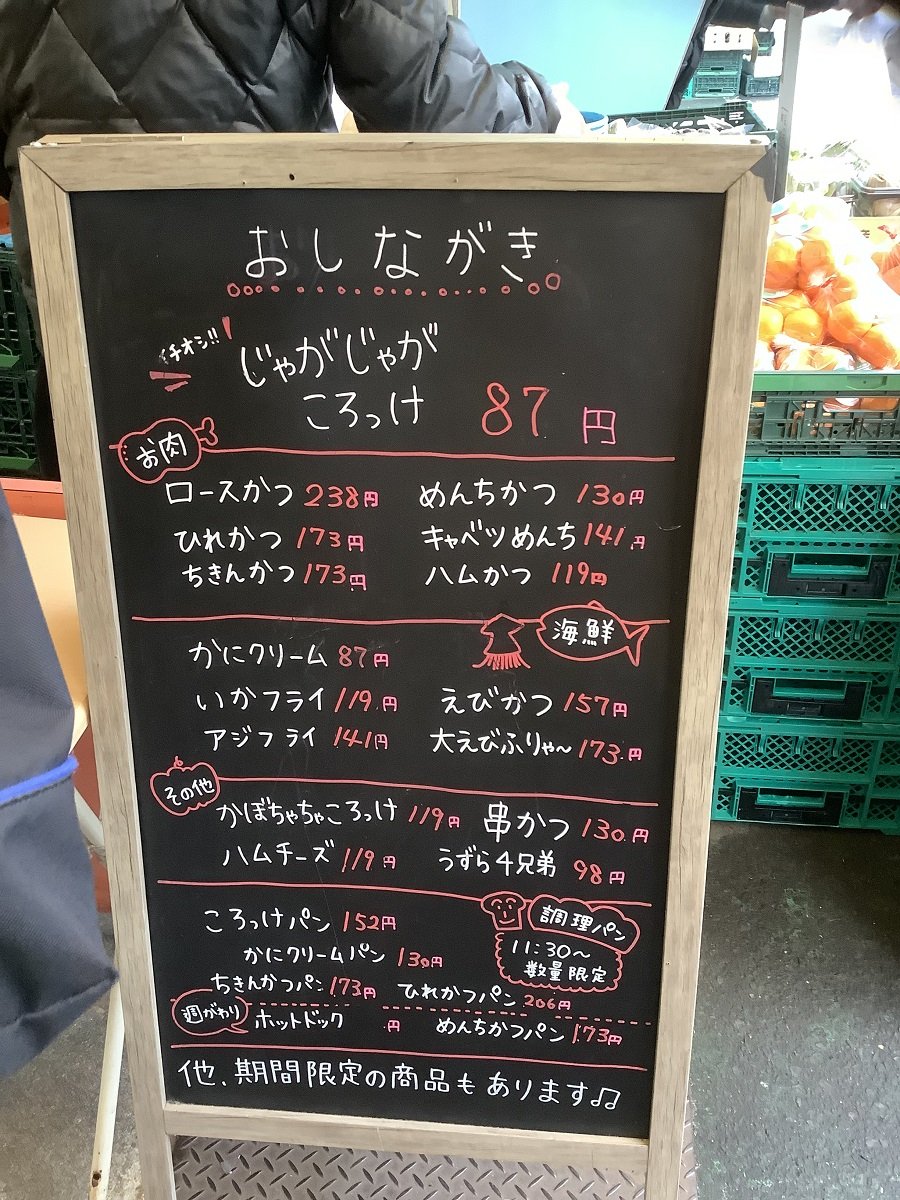 おしながき
イチオシ!!
じゃがじゃが
ころっけ 87円
お肉
ロースかつ 238円 めんちかつ 130円
ひれかつ 173円 キャベツめんち 141円
ちきんかつ 173円 ハムかつ 119円
海鮮
かにクリーム 87円
いかフライ 119円 えびかつ 157円
アジフライ 141円 大えびふりゃ~ 173円
その他
かぼちゃちゃころっけ 119円 串かつ 130円
ハムチーズ 119円 うずら4兄弟 98円
調理パン
11:30~
数量限定
ころっけパン 152円
かにクリームパン 130円
ちきんかつパン 173円 ひれかつパン 206円
週がわり ホットドック 円 めんちかつパン 173円
他、期間限定の商品もあります♫